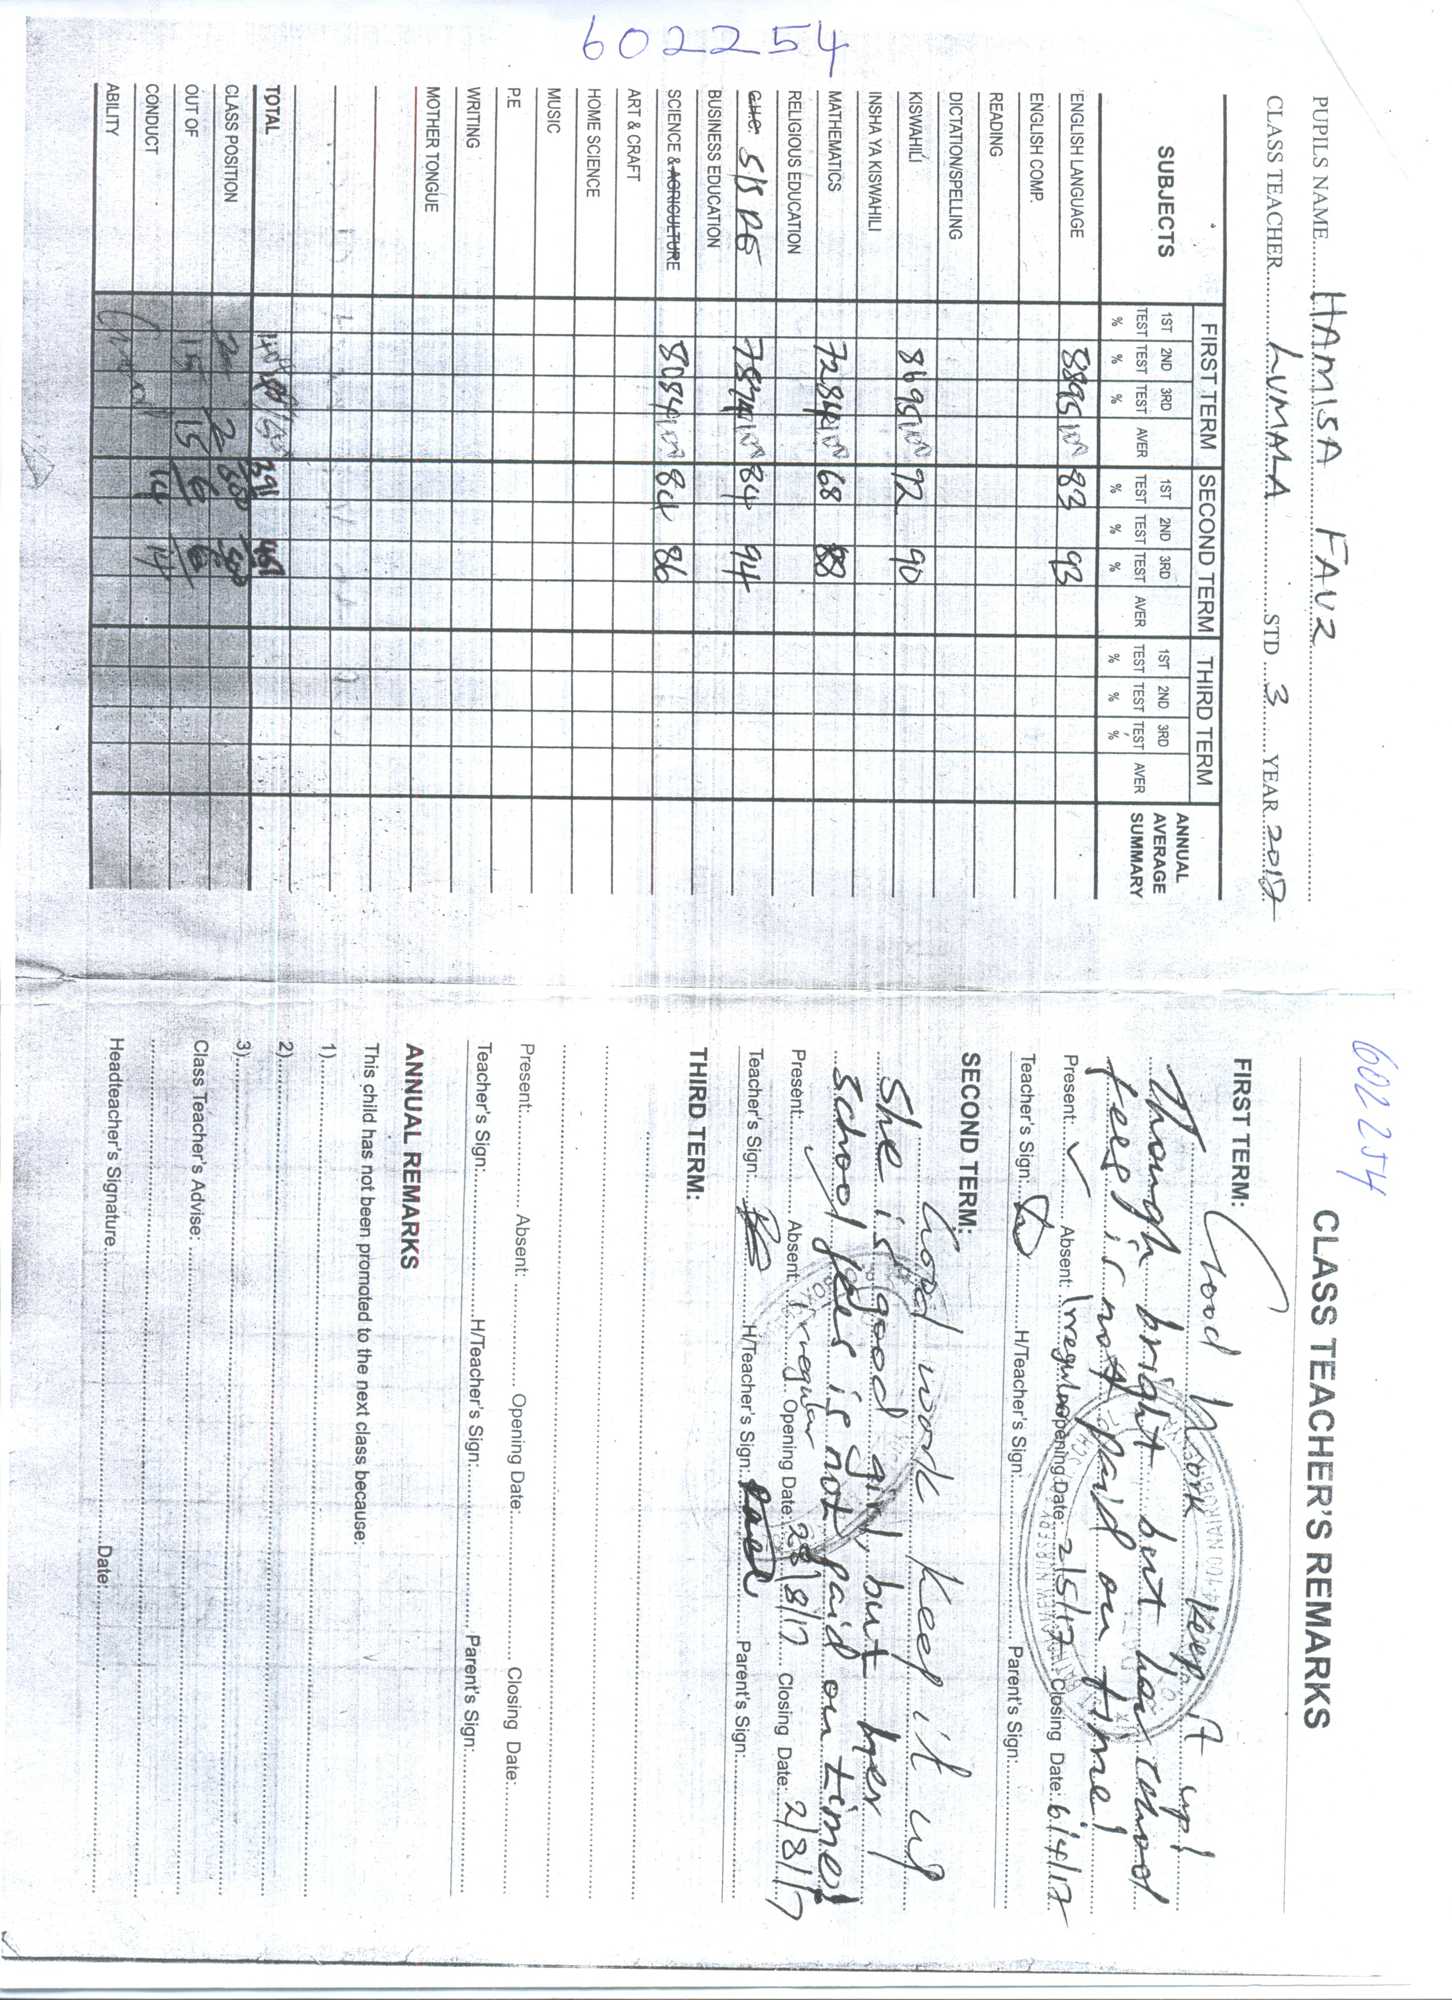 602254
PUPILS NAME HAMISA FAUZ
CLASS TEACHER LUMALA STD 3 YEAR 2017
SUBJECTS FIRST TERM SECOND TERM THIRD TERM ANNUAL AVERAGE SUMMARY
1ST TEST % 2ND TEST % 3RD TEST % AVER 1ST TEST % 2ND TEST % 3RD TEST % AVER 1ST TEST % 2ND TEST % 3RD TEST % AVER
ENGLISH LANGUAGE 88 95 83 93
ENGLISH COMP.
READING
DICTATION/SPELLING
KISWAHILI 86 95 92 90
INSHA YA KISWAHILI
MATHEMATICS 72 84 68 88
RELIGIOUS EDUCATION
G.H.C. S/S RE 78 84 94
BUSINESS EDUCATION
SCIENCE & AGRICULTURE 80 84 84 86
ART & CRAFT
HOME SCIENCE
MUSIC
P.E
WRITING
MOTHER TONGUE
TOTAL 391
CLASS POSITION 2
OUT OF 15 15
CONDUCT 14 14
ABILITY Good
602254
CLASS TEACHER'S REMARKS
FIRST TERM: Good work keep it up!
Though bright but her school
fees is not paid on time!
Present: ✓ Absent: Irregular Opening Date 2/5/17 Closing Date: 6/4/17
Teacher's Sign: H/Teacher's Sign: Parent's Sign:
SECOND TERM: Good work keep it up
She is good girl, but her
school fees is not paid on time!
Present: ✓ Absent: Irregular Opening Date: 28/8/17 Closing Date: 2/8/17
Teacher's Sign: H/Teacher's Sign: Parent's Sign:
THIRD TERM:
Present: Absent: Opening Date: Closing Date:
Teacher's Sign: H/Teacher's Sign: Parent's Sign:
ANNUAL REMARKS
This child has not been promoted to the next class because:
1)
2)
3)
Class Teacher's Advise:
Headteacher's Signature Date: